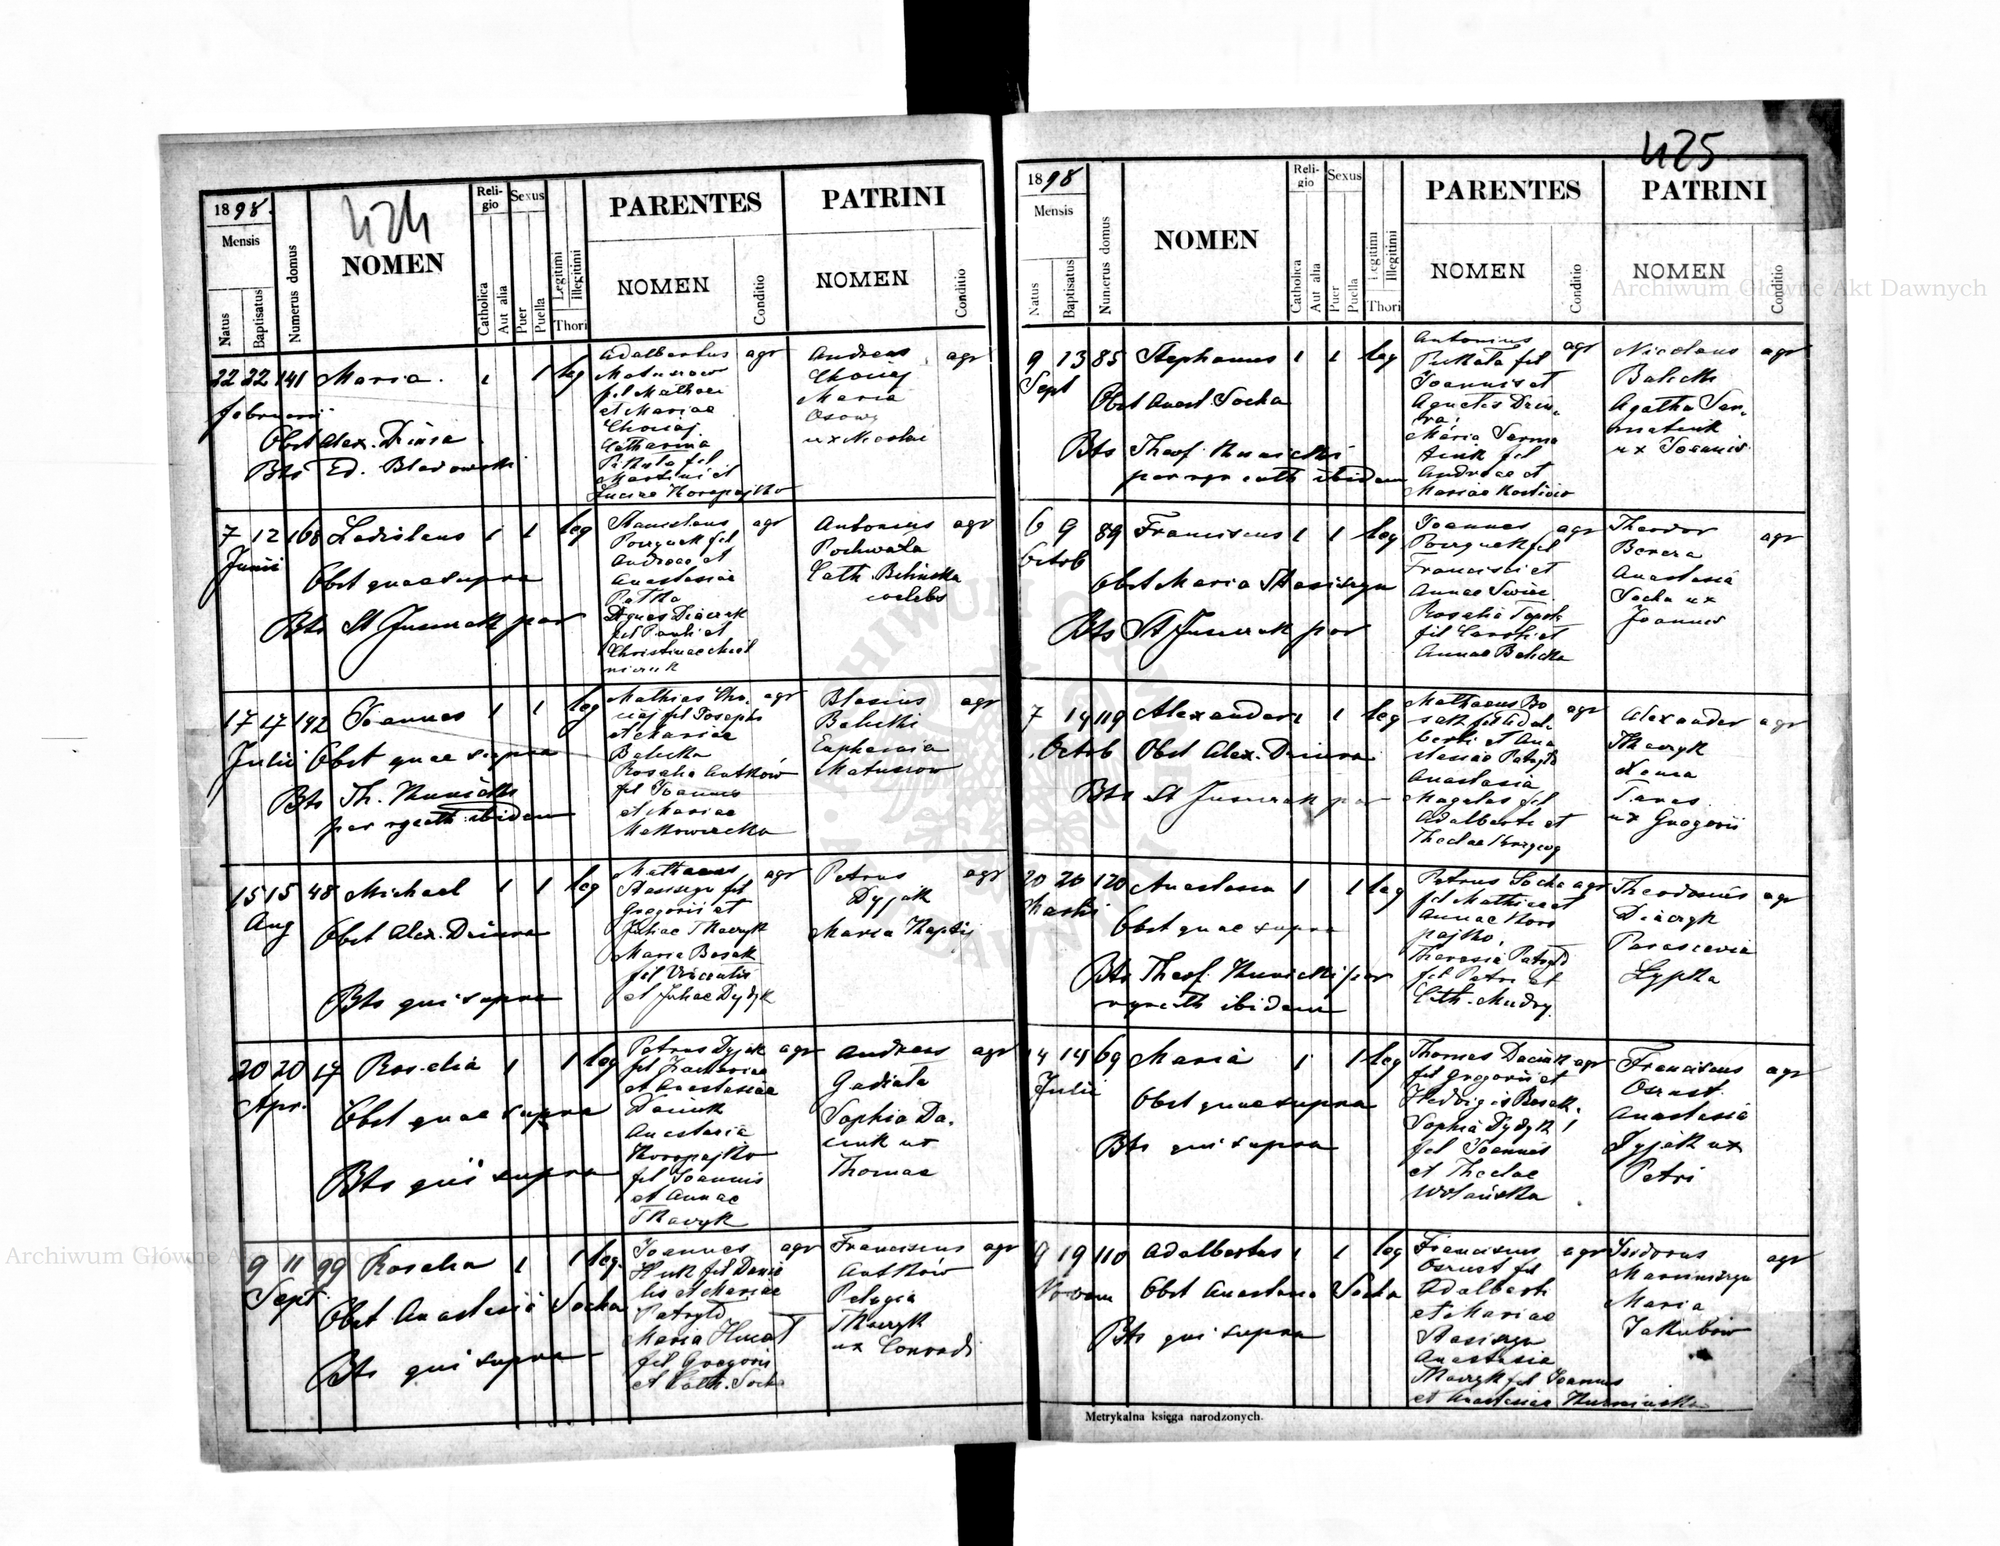 424
1898.
Mensis
Natus
Baptisatus
Numerus domus
NOMEN
Religio
Catholica
Aut alia
Sexus
Puer
Puella
Legitimi
Illegitimi
Thori
PARENTES
NOMEN
Conditio
PATRINI
NOMEN
Conditio
22 22 141 Maria. 1 1 leg
februarii
Obst Alex. Dziura
Bts Ed.
Adalbertus agr
fil Mathaei
et Mariae
Catharina
Martini et
Luciae Koropajło
Andreas agr
Maria
ux Nicolai
7 12 168 Ladislaus 1 1 leg
Junii
Obst quae supra
Bts St Juszczak par
Stanislaus agr
fil
Andreae et
Anastasiae
Agnes
fil Pauli et
Christinae
Antonius agr
Pochwała
Cath. Bilińska
coelebs
17 17 192 Joannes 1 1 leg
Julii Obst quae supra
Bts Th. Kunicki
par rgcath ibidem
Mathias agr
fil Josephi
et Mariae
Balicka
Rosalia Antków
fil Joannis
et Mariae
Blasius agr
Balicki
Euphemia
Matuszow
15 15 48 Michael 1 1 leg
Aug Obst Alex. Dziura
Bts qui supra
Mathaeus agr
fil
Gregorii et
Juliae Tkaczyk
Maria Bosak
fil Vincentii
et Juliae Dydyk
Petrus agr
Dyjak
Maria
20 20 17 Rosalia 1 1 leg
Apr. Obst quae supra
Bts qui supra
Petrus Dyjak agr
fil Zachariae
et Anastasiae
Daciuk
Anastasia
Koropajło
fil Joannis
et Annae
Tkaczyk
Andreas agr
Gadiała
Sophia Da
ciuk ux
Thomae
9 11 99 Rosalia 1 1 leg.
Sept. Obst Anastasia Socha
Bts qui supra
Joannes agr
Huk fil Dani
lis et Mariae
Patryło
Maria
fil Gregorii
et Cath. Socha
Franciscus agr
Antków
Pelagia
Tkaczyk
ux Conradi
425
1898
Mensis
Natus
Baptisatus
Numerus domus
NOMEN
Religio
Catholica
Aut alia
Sexus
Puer
Puella
Legitimi
Illegitimi
Thori
PARENTES
NOMEN
Conditio
PATRINI
NOMEN
Conditio
9 13 85 Stephanus 1 1 leg
Sept
Obst Anast. Socha
Bts Theof. Kunicki
par rgr cath ibidem
Antonius agr
fil
Joannis et
Agnetis Dziu
ra;
Maria Sarma
tiuk fil
Andreae et
Mariae
Nicolaus agr
Balicki
Agatha Sar
matiuk
ux Joannis
6 9 89 Franciscus 1 1 leg
Octob
Obst Maria
Bts St Juszczak par
Joannes agr
fil
Francisci et
Annae
Rosalia
fil Caroli et
Annae Balicka
Theodor agr
Berera
Anastasia
Socha ux
Joannis
7 14 119 Alexander 1 1 leg
Octob Obst Alex. Dziura
Bts St Juszczak par
Mathaeus Bo agr
sak fil Adal
berti et Ana
stasiae Patryło
Anastasia
Magalas fil
Adalberti et
Theclae
Alexander agr
Tkaczyk
Taras
ux Gregorii
20 26 120 Anastasia 1 1 leg
Martii
Obst quae supra
Bts Theof. Kunicki par
rgrcath ibidem
Petrus Socha agr
fil Mathiae et
Annae Koro
pajło.
Theresia Patryło
fil Petri et
Cath. Mudry.
Theodosius agr
Parascevia
Łypka
14 14 69 Maria 1 1 leg
Julii
Obst quae supra
Bts qui supra
Thomas Daciuk agr
fil Gregorii et
Hedvigis Bosak.
Sophia Dydyk
fil Joannis
et Theclae
Wolańska
Franciscus agr
Anastasia
Dyjak ux
Petri
9 19 110 Adalbertus 1 1 leg
Novem Obst Anastasia Socha
Bts qui supra
Franciscus agr
fil
Adalberti
et Mariae
Anastasia
Tkaczyk fil Joannis
et Anastasiae
Isidorus agr
Maria
Jakubów
Metrykalna księga narodzonych.
Archiwum Główne Akt Dawnych
Archiwum Główne Akt Dawnych